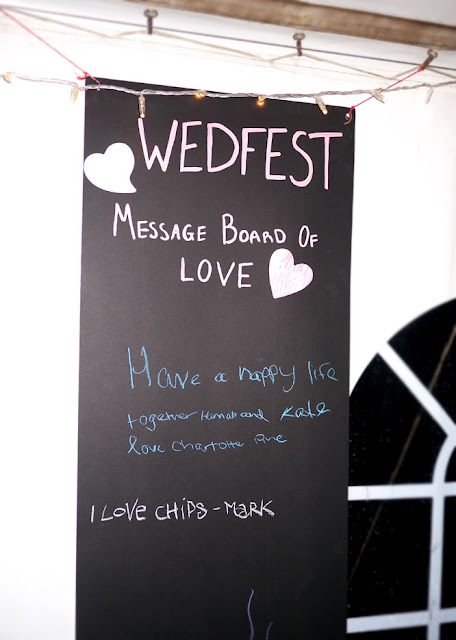 WEDFEST
MESSAGE BOARD OF
LOVE
Have a happy life
together and Kate
love Charlotte
I LOVE CHIPS - MARK